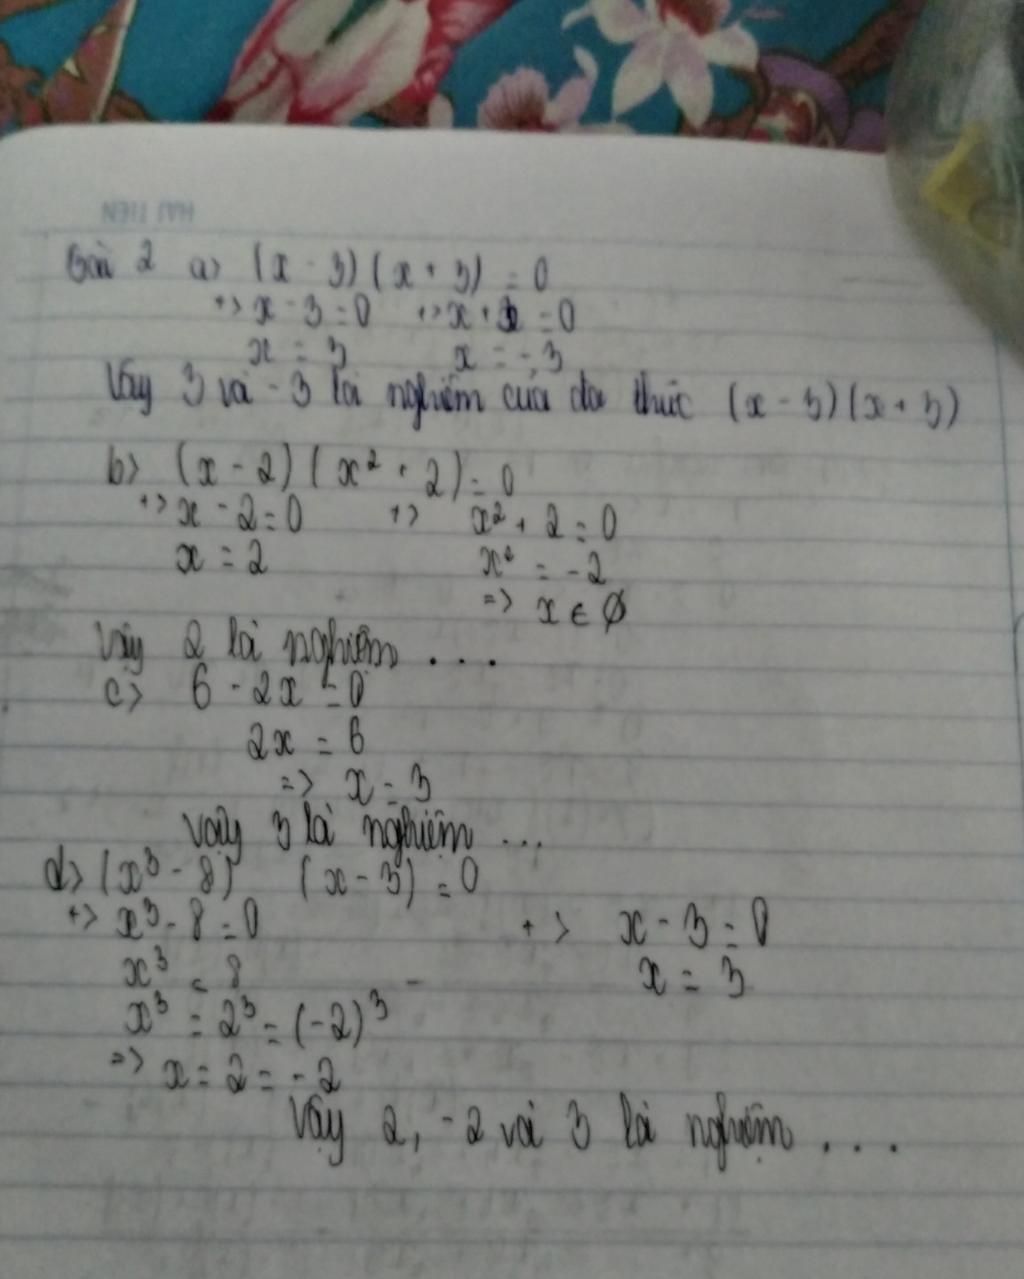 HẢI TIẾN
Bài 2 a> (x - 3) (x + 3) = 0
+> x - 3 = 0 +> x + 3 = 0
x = 3 x = -3
Vậy 3 và -3 là nghiệm của đa thức (x - 3) (x + 3)
b> (x - 2) (x² + 2) = 0
+> x - 2 = 0 +> x² + 2 = 0
x = 2 x² = -2
=> x ∈ ∅
Vậy 2 là nghiệm ...
c> 6 - 2x = 0
2x = 6
=> x = 3
Vậy 3 là nghiệm ...
d> (x³ - 8) (x - 3) = 0
+> x³ - 8 = 0 +> x - 3 = 0
x³ = 8 x = 3
x³ = 2³ = (-2)³
=> x = 2 = -2
Vậy 2, -2 và 3 là nghiệm ...